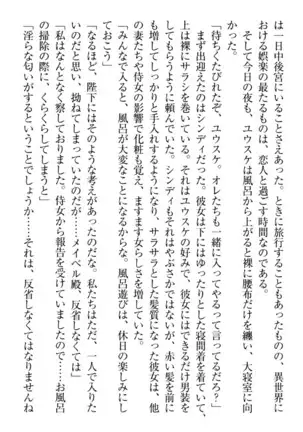 は一日中後宮にいることさえあった。ときに旅行することもあったものの、異世界に
おける娯楽の最たるものは、恋人と過ごす時間なのである。
そして今日の夜も、ユウスケは風呂から上がると裸に腰布だけを纏い、大寝室に向
かった。
「待ちくたびれたぞ、ユウスケ。オレたちも一緒に入ってやるって言ってるだろ？」
まず出迎えてきたのはシンディだった。彼女は下にはゆったりとした寝間着を着ていて、
上は裸にサラシを巻いている。それはユウスケの好みで、彼女にはできるだけ男装を
してもらうように頼んでいた。シンディもそれはやぶさかではないが、赤い髪を前に
も増してしっかりと手入れするようになり、サラサラとした髪質になった彼女は、他
の妻たちや侍女の影響で化粧も覚え、ますます女らしさを増していた。
「みんなで入ると、風呂が大変なことになるからな。風呂遊びは、休日の楽しみにし
ておこう」
「なるほど、陛下にはそのような考えがあったのだな。私たちはただ、一人で入りた
いのだと思い、拗ねてしまっていたのだが……メイベル殿、反省しなくては」
「私はなんとなく察しておりました。侍女から報告を受けていましたので……お風呂
の掃除の際に、くらくらしてしまうと」
「淫らな匂いがするということでしょうか……それは、反省しなくてはなりませんね